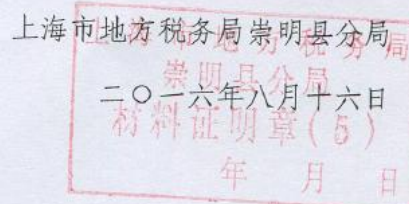 上海市地方税务局崇明县分局
二〇一六年八月十六日
上海市地方税务局
崇明县分局
材料证明章(5)
年 月 日